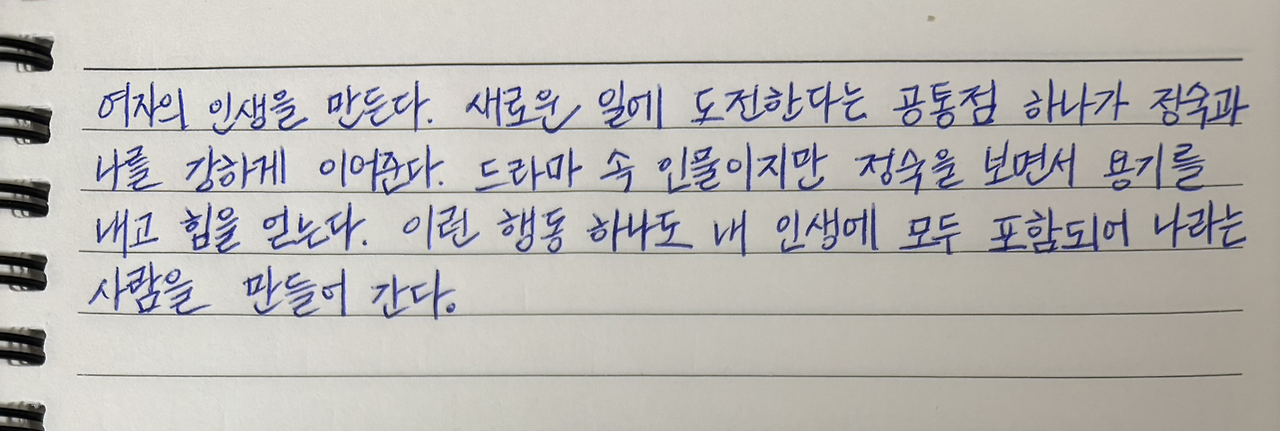 여자의 인생을 만든다. 새로운 일에 도전한다는 공통점 하나가 정숙과
나를 강하게 이어준다. 드라마 속 인물이지만 정숙을 보면서 용기를
내고 힘을 얻는다. 이런 행동 하나도 내 인생에 모두 포함되어 나라는
사람을 만들어 간다.